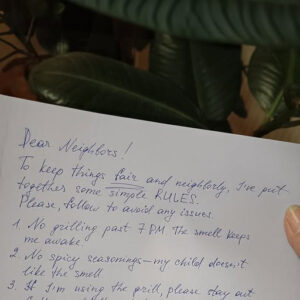 Dear Neighbors!
To keep things fair and neighborly, I've put
together some simple RULES.
Please, follow to avoid any issues.
1. No grilling past 7 PM. The smell keeps
me awake.
2. No spicy seasonings—my child doesn't
like the smell
3. If I'm using the grill, please stay out